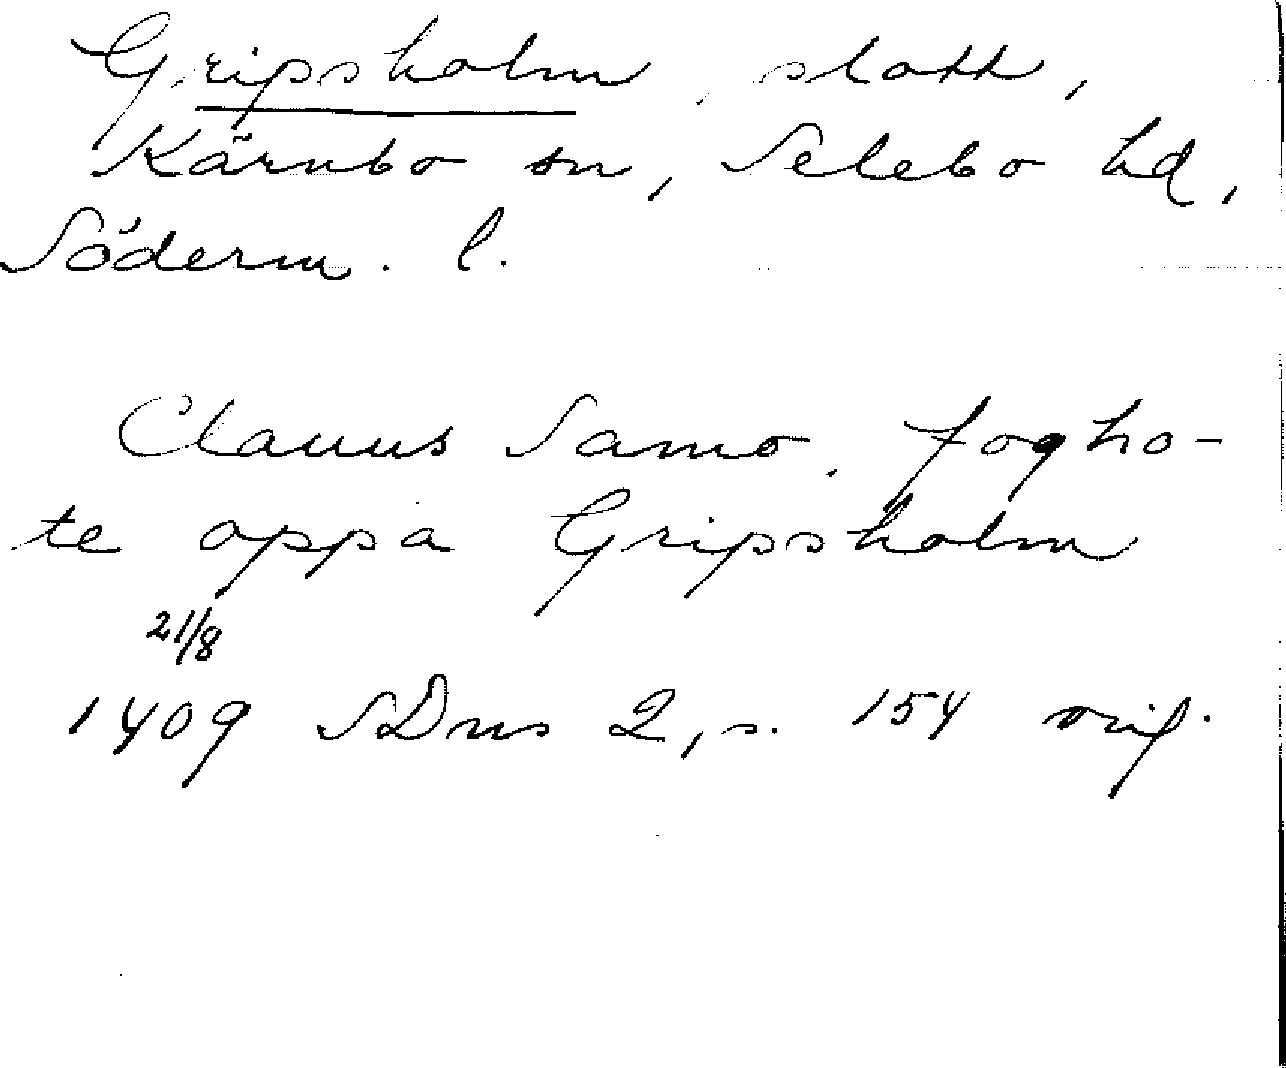 Gripsholm, slott,
Kärnbo sn, Selebo hd,
Söderm. l.
Clauus Samo, fogho-
te oppa Gripsholm
21/8
1409 SDns 2, s. 154 orig.